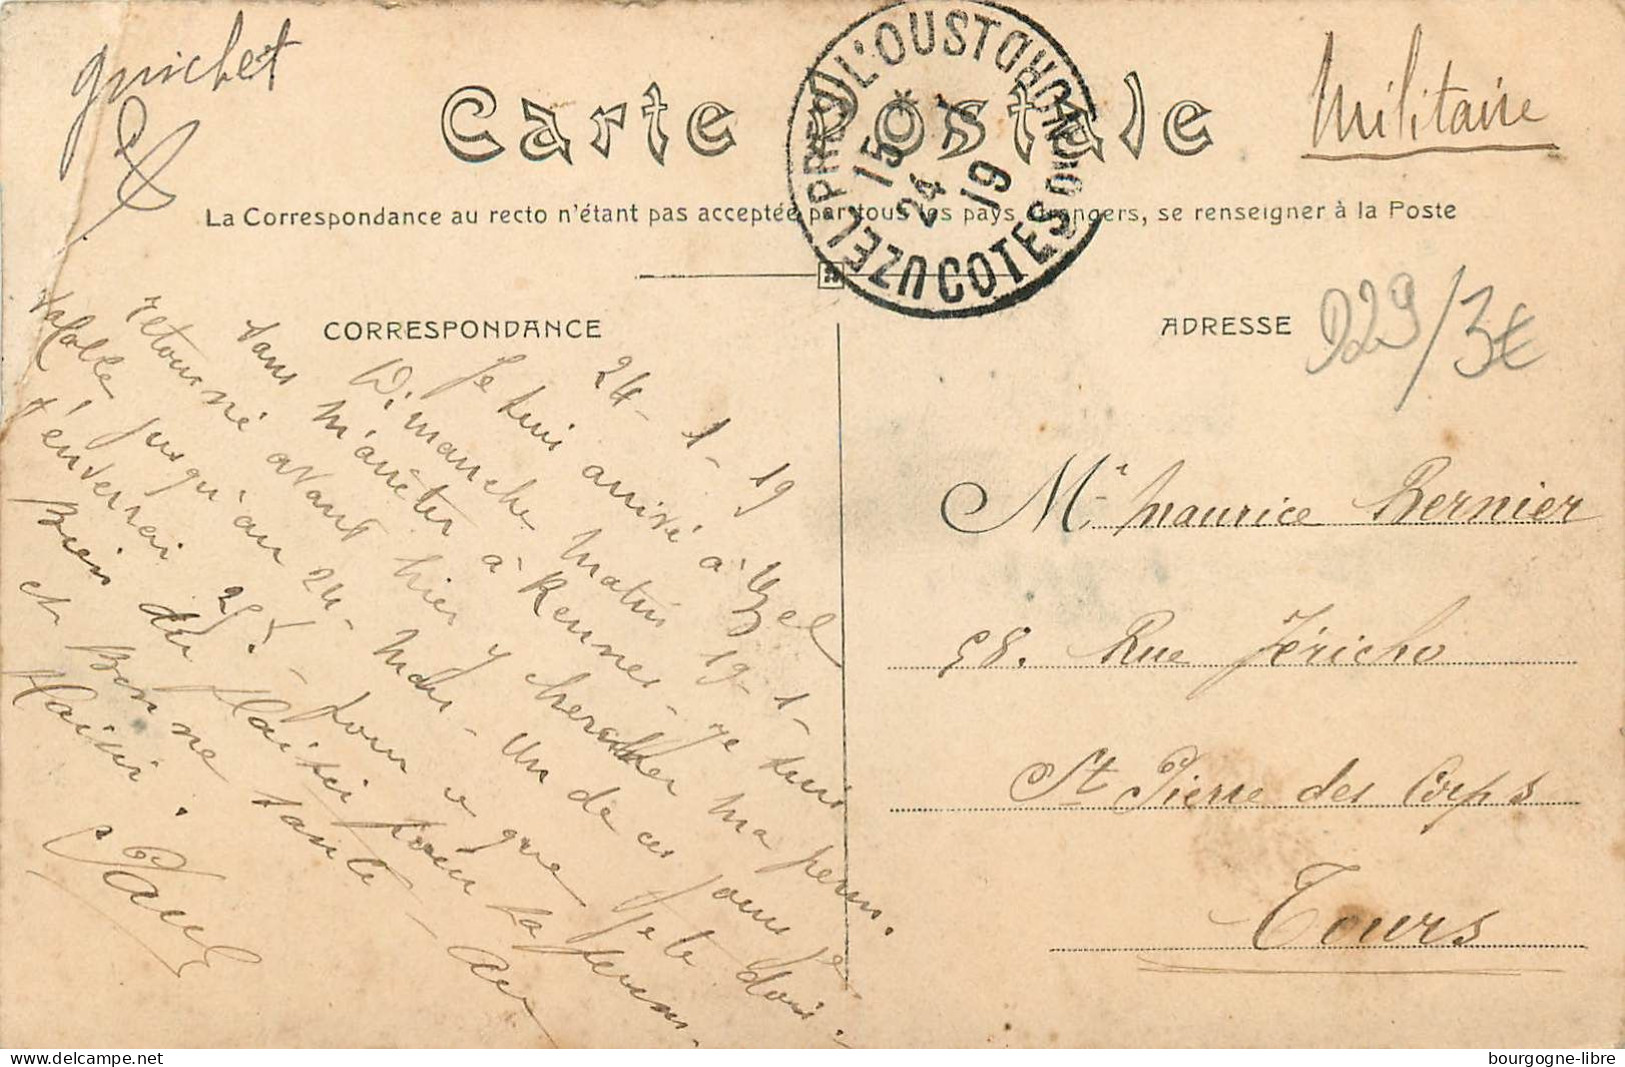 guichet
Carte Postale
Militaire
UZEL PRES L'OUST COTES DU NORD
15 *
24 - 1
19
La Correspondance au recto n'étant pas acceptée par tous les pays étrangers, se renseigner à la Poste
CORRESPONDANCE
ADRESSE
D29/3€
24-1-19
Je suis arrivé à Uzel
Dimanche matin 19-1-
sans m'arrêter à Rennes - je suis
retourné avant hier y chercher ma perm.
valable jusqu'au 24- Mars - Un de ces jours je
t'enverrai 25f. - pour que je te dois.
Bien du plaisir pour la
et Bonne santé - Au
plaisir.
Paul
Mr. Maurice Bernier
58. Rue Jéricho
St Pierre des Corps
Tours
bourgogne-libre